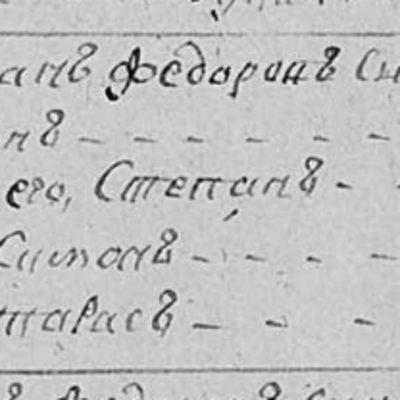 анъ Федоровъ Си
нъ
его, Степанъ
Симонъ
тарасъ